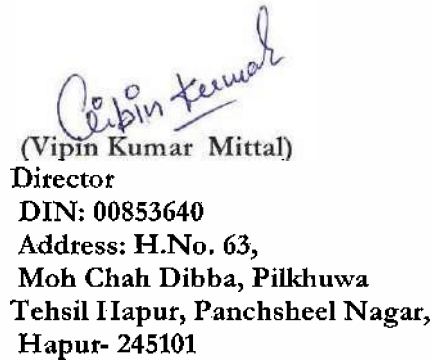 Vipin Kumar
(Vipin Kumar Mittal)
Director
DIN: 00853640
Address: H.No. 63,
Moh Chah Dibba, Pilkhuwa
Tehsil Hapur, Panchsheel Nagar,
Hapur- 245101